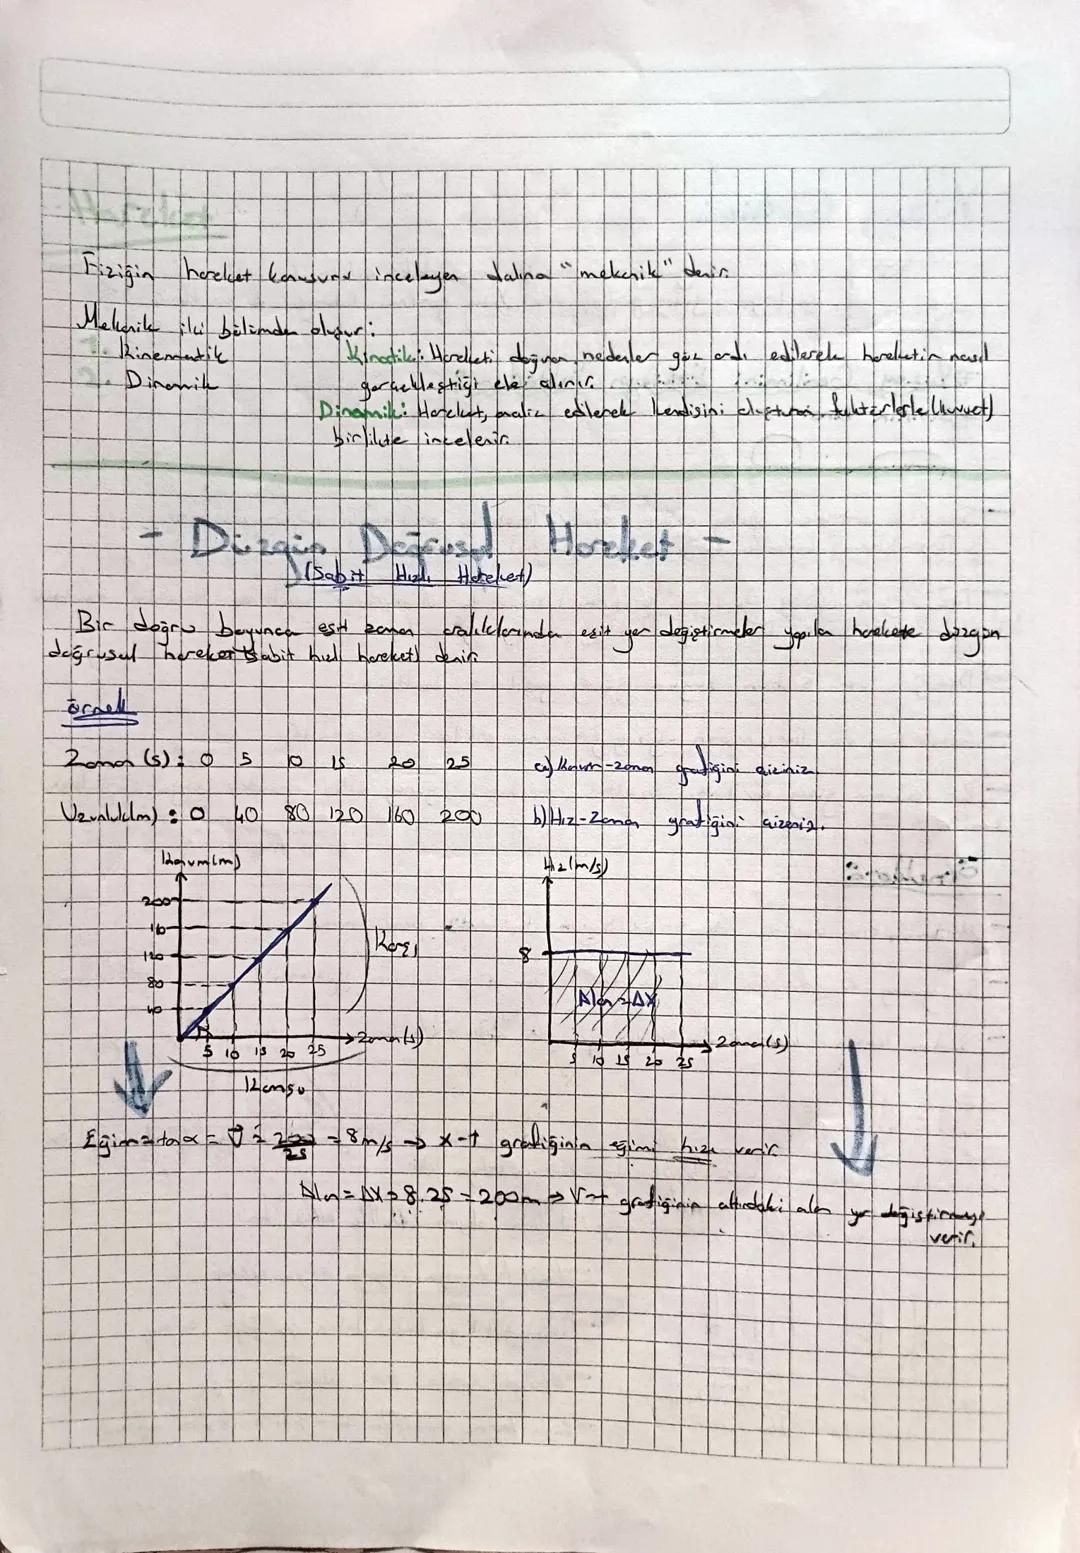 Fiziğin hareket konusunu inceleyen dalına "mekanik" denir.
Mekanik iki bölümden oluşur:
1. Kinematik
2. Dinamik
Kinematik: Hareketi doğuran nedenler göz ardı edilerek hareketin nasıl
gerçekleştiği ele alınır.
Dinamik: Hareket, analiz edilerek kendisini oluşturan faktörlerle (kuvvet)
birlikte incelenir.
- Düzgün Doğrusal Hareket -
(Sabit Hızlı Hareket)
Bir doğru boyunca eşit zaman aralıklarında eşit yer değiştirmeler yapılan harekete düzgün
doğrusal hareket (sabit hızlı hareket) denir.
örnek
Zaman (s): 0 5 10 15 20 25
a) Konum-zaman grafiğini çiziniz.
Uzunluk(m): 0 40 80 120 160 200
b) Hız-Zaman grafiğini çiziniz.
Konum(m)
200
16
120
80
40
5 10 15 20 25
Zaman(s)
Karşı
Komşu
Hız(m/s)
8
Alan=ΔX
5 10 15 20 25
Zaman(s)
Eğim=tanα = V = 200/25 = 8m/s → x-t grafiğinin eğimi hızı verir
Alan=ΔX=8.25=200m → V-t grafiğinin altındaki alan yer değiştirmeyi
verir.